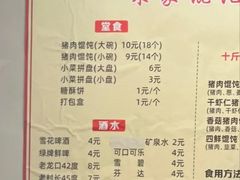 堂食
猪肉馄饨(大碗) 10元(18个)
猪肉馄饨(小碗) 9元(14个)
小菜拼盘(大盘) 6元
小菜拼盘(小盘) 3元
糖酥饼 1元/个
打包盒 1元/个
酒水
雪花啤酒 4元
矿泉水 2元
绿牌鲜啤 4元
可口可乐 4元
老龙口42度 8元
雪碧 4元
老村长45度
芬达 4元
十斤
猪肉馄饨
干虾仁
香菇猪肉
四鲜馄饨
食用方法